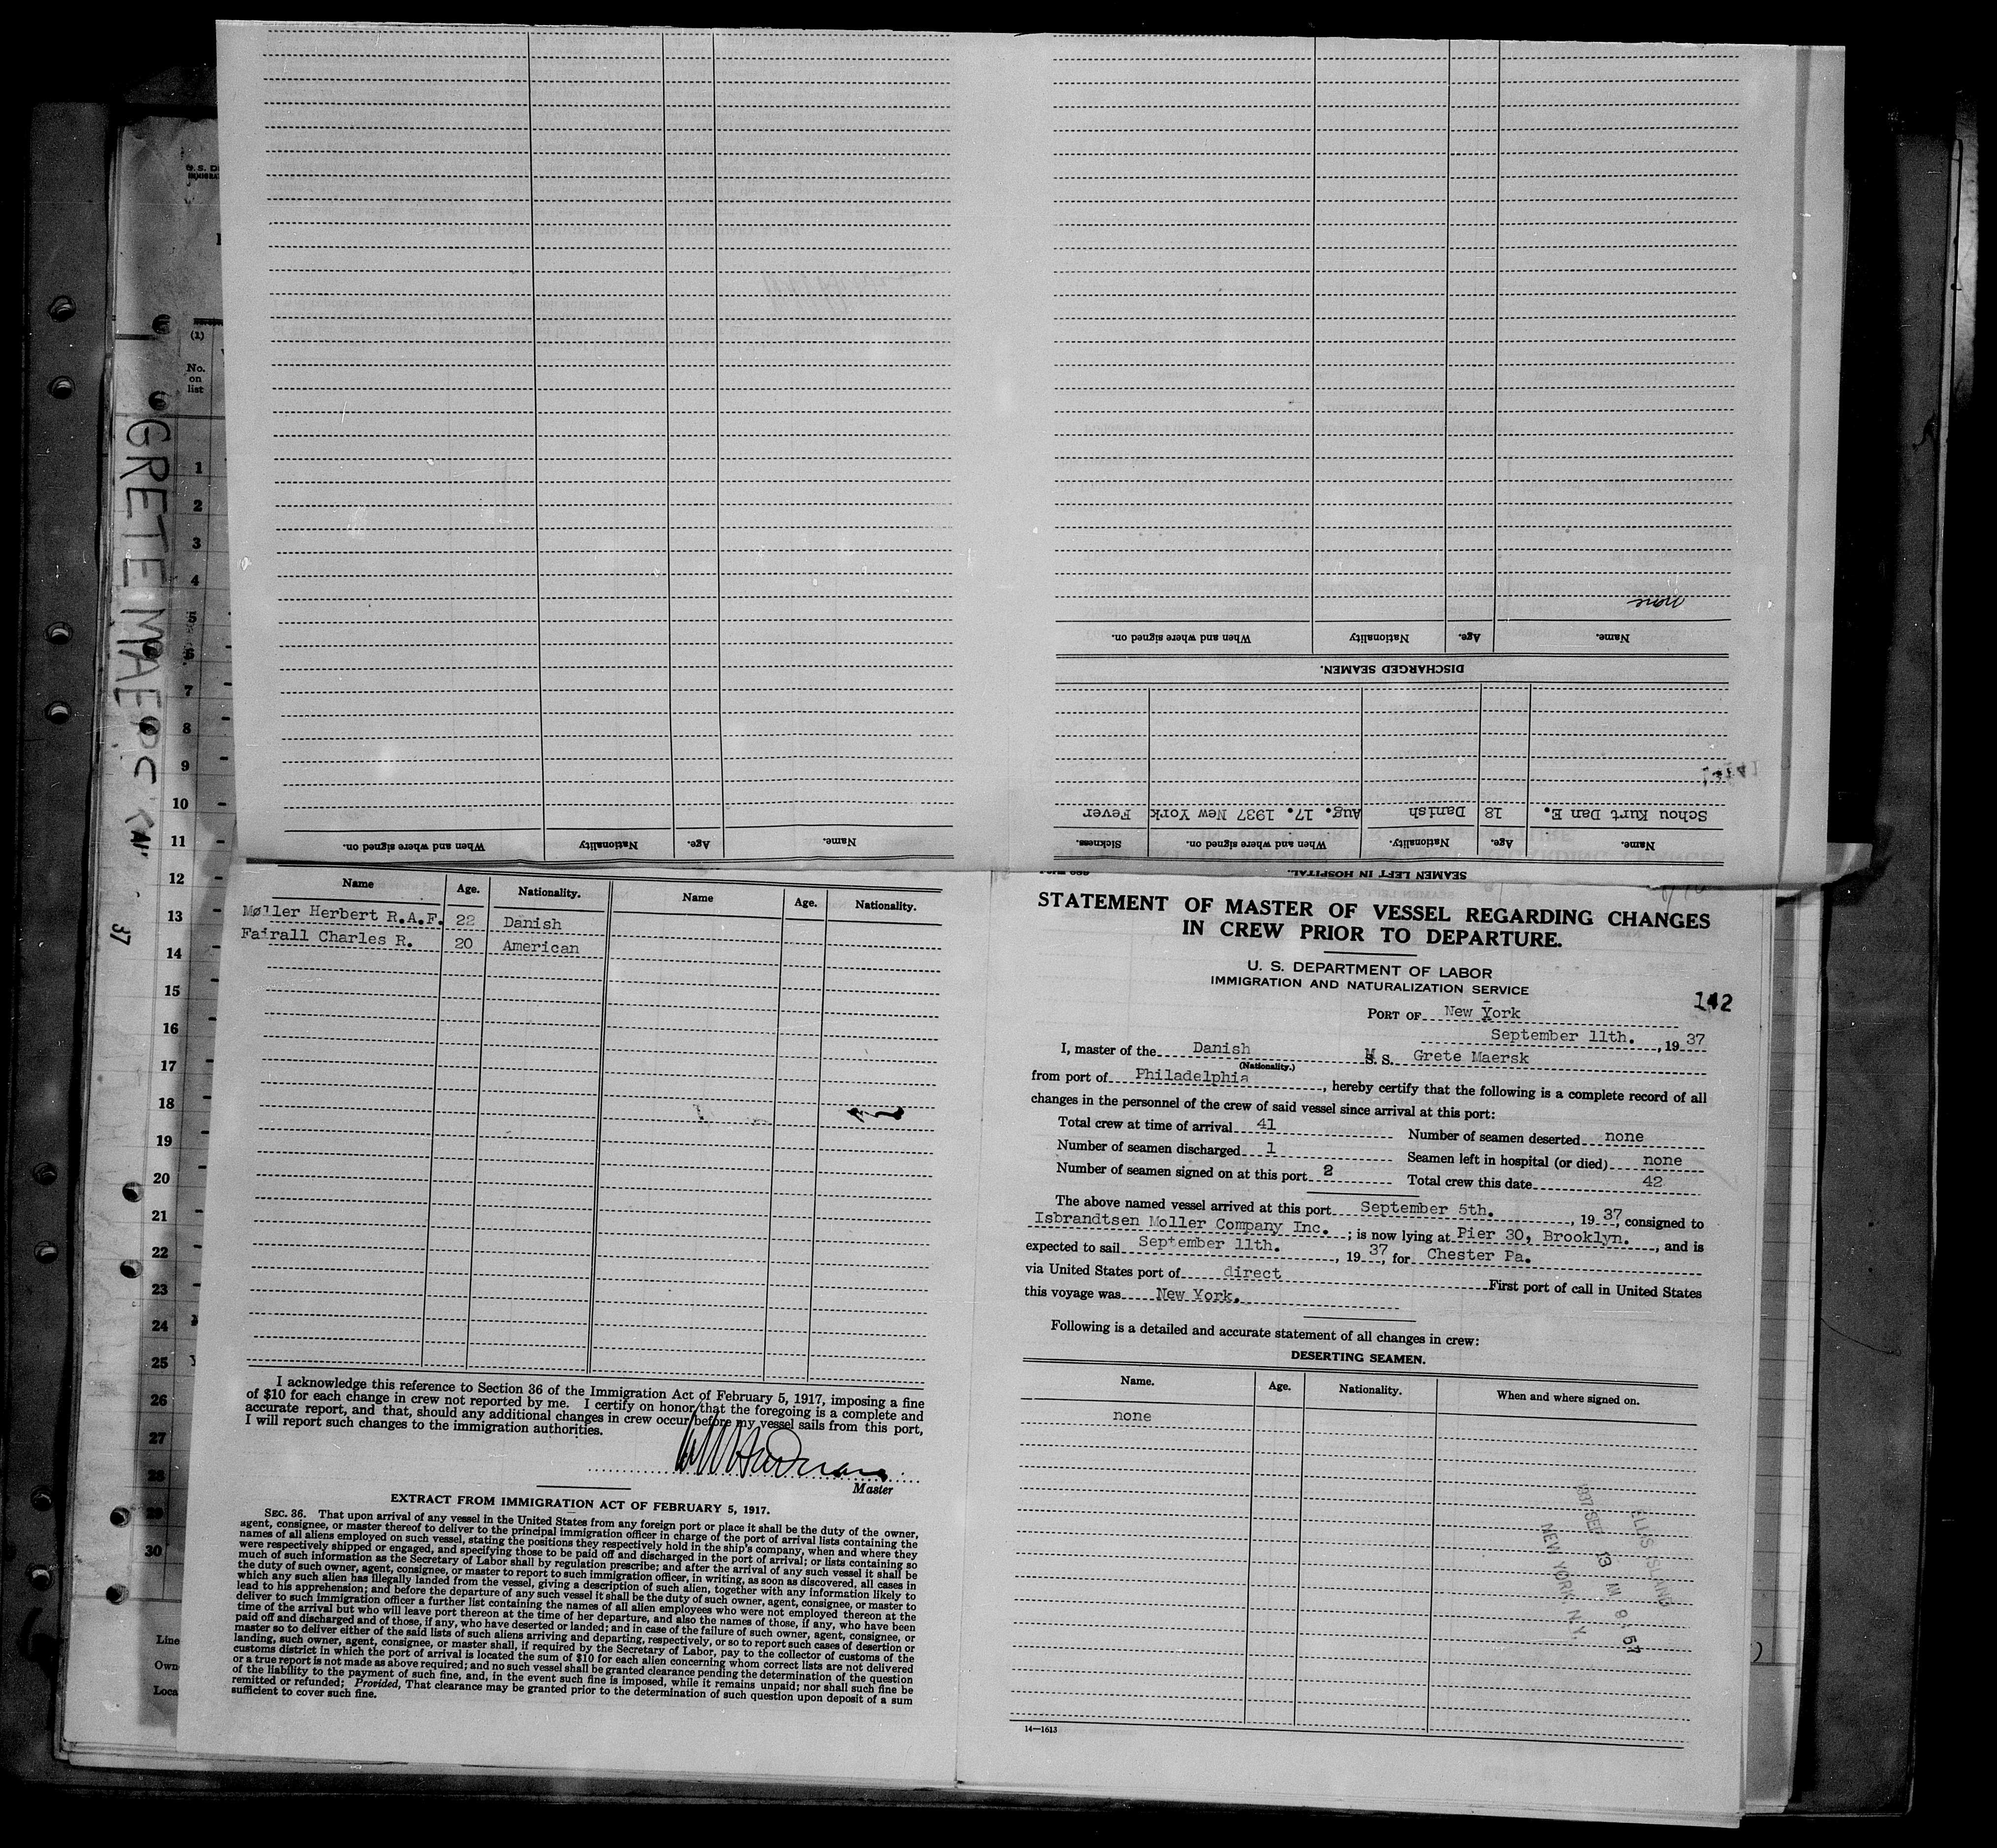 GRETE MAERSK
37
U. S. D
IMMIGRA
(1)
No.
on
list
1
2
3
4
5
6
7
8
9
10
11
12
13
14
15
16
17
18
19
20
21
22
23
24
25
26
27
28
29
30
Line
Own
Loca
SEAMEN LEFT IN HOSPITAL.
Name. Age. Nationality. When and where signed on. Sickness.
Schou Kurt Dan E. 18 Danish Aug. 17. 1937 New York Fever
DISCHARGED SEAMEN.
Name. Age. Nationality When and where signed on.
None
Name. Age. Nationality When and where signed on.
Name Age. Nationality. Name Age. Nationality.
Møller Herbert R.A.F. 22 Danish
Fairall Charles R. 20 American
I acknowledge this reference to Section 36 of the Immigration Act of February 5, 1917, imposing a fine
of $10 for each change in crew not reported by me. I certify on honor that the foregoing is a complete and
accurate report, and that, should any additional changes in crew occur before my vessel sails from this port,
I will report such changes to the immigration authorities.
Master
EXTRACT FROM IMMIGRATION ACT OF FEBRUARY 5, 1917.
SEC. 36. That upon arrival of any vessel in the United States from any foreign port or place it shall be the duty of the owner,
agent, consignee, or master thereof to deliver to the principal immigration officer in charge of the port of arrival lists containing the
names of all aliens employed on such vessel, stating the positions they respectively hold in the ship's company, when and where they
were respectively shipped or engaged, and specifying those to be paid off and discharged in the port of arrival; or lists containing so
much of such information as the Secretary of Labor shall by regulation prescribe; and after the arrival of any such vessel it shall be
the duty of such owner, agent, consignee, or master to report to such immigration officer, in writing, as soon as discovered, all cases in
which any such alien has illegally landed from the vessel, giving a description of such alien, together with any information likely to
lead to his apprehension; and before the departure of any such vessel it shall be the duty of such owner, agent, consignee, or master to
deliver to such immigration officer a further list containing the names of all alien employees who were not employed thereon at the
time of the arrival but who will leave port thereon at the time of her departure, and also the names of those, if any, who have been
paid off and discharged and of those, if any, who have deserted or landed; and in case of the failure of such owner, agent, consignee, or
master so to deliver either of the said lists of such aliens arriving and departing, respectively, or so to report such cases of desertion or
landing, such owner, agent, consignee, or master shall, if required by the Secretary of Labor, pay to the collector of customs of the
customs district in which the port of arrival is located the sum of $10 for each alien concerning whom correct lists are not delivered
or a true report is not made as above required; and no such vessel shall be granted clearance pending the determination of the question
of the liability to the payment of such fine, and, in the event such fine is imposed, while it remains unpaid; nor shall such fine be
remitted or refunded; Provided, That clearance may be granted prior to the determination of such question upon deposit of a sum
sufficient to cover such fine.
STATEMENT OF MASTER OF VESSEL REGARDING CHANGES
IN CREW PRIOR TO DEPARTURE.
U. S. DEPARTMENT OF LABOR
IMMIGRATION AND NATURALIZATION SERVICE
142
PORT OF New York
September 11th. , 19 37
I, master of the Danish M S. S. Grete Maersk
(Nationality.)
from port of Philadelphia , hereby certify that the following is a complete record of all
changes in the personnel of the crew of said vessel since arrival at this port:
Total crew at time of arrival 41 Number of seamen deserted none
Number of seamen discharged 1 Seamen left in hospital (or died) none
Number of seamen signed on at this port 2 Total crew this date 42
The above named vessel arrived at this port September 5th. , 19 37, consigned to
Isbrandtsen Moller Company Inc. ; is now lying at Pier 30, Brooklyn. , and is
expected to sail September 11th. , 19 37, for Chester Pa.
via United States port of direct First port of call in United States
this voyage was New York.
Following is a detailed and accurate statement of all changes in crew:
DESERTING SEAMEN.
Name. Age. Nationality. When and where signed on.
none
ELLIS ISLAND
1937 SEP 13 AM 8 57
NEW YORK, N.Y.
14—1613